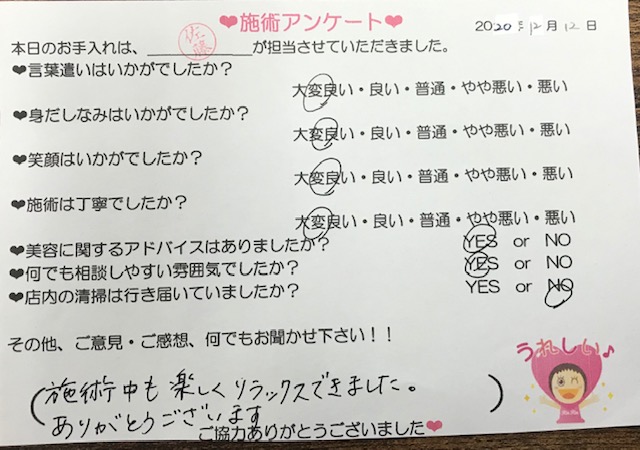 ❤施術アンケート❤
2020年12月12日
本日のお手入れは、佐藤が担当させていただきました。
❤言葉遣いはいかがでしたか?
大変良い・良い・普通・やや悪い・悪い
❤身だしなみはいかがでしたか?
大変良い・良い・普通・やや悪い・悪い
❤笑顔はいかがでしたか?
大変良い・良い・普通・やや悪い・悪い
❤施術は丁寧でしたか?
大変良い・良い・普通・やや悪い・悪い
❤美容に関するアドバイスはありましたか? YES or NO
❤何でも相談しやすい雰囲気でしたか? YES or NO
❤店内の清掃は行き届いていましたか? YES or NO
その他、ご意見・ご感想、何でもお聞かせ下さい!!
うれしい♪
(施術中も楽しくリラックスできました。
ありがとうございます)
ご協力ありがとうございました❤